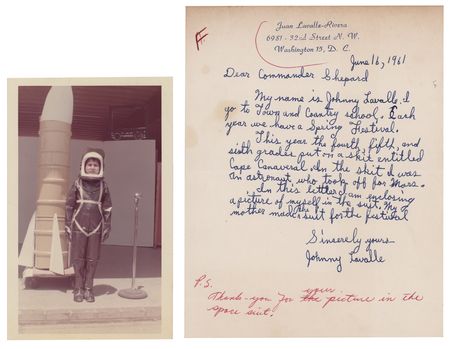 Juan Lavalle-Rivera
6981 - 32nd Street N. W.
Washington 15, D. C.
June 16, 1961
Dear Commander Shepard
My name is Johnny Lavalle. I
go to Town and Country school. Each
year we have a Spring Festival.
This year the fourth, fifth, and
sixth grades put on a skit entitled
Cape Canaveral. In the skit I was
an astronaut who took off for Mars.
In this letter I am enclosing
a picture of myself in the suit. My
mother made the suit for the festival
Sincerely yours
Johnny Lavalle
P.S.
your
Thank-you for the picture in the
space suit.